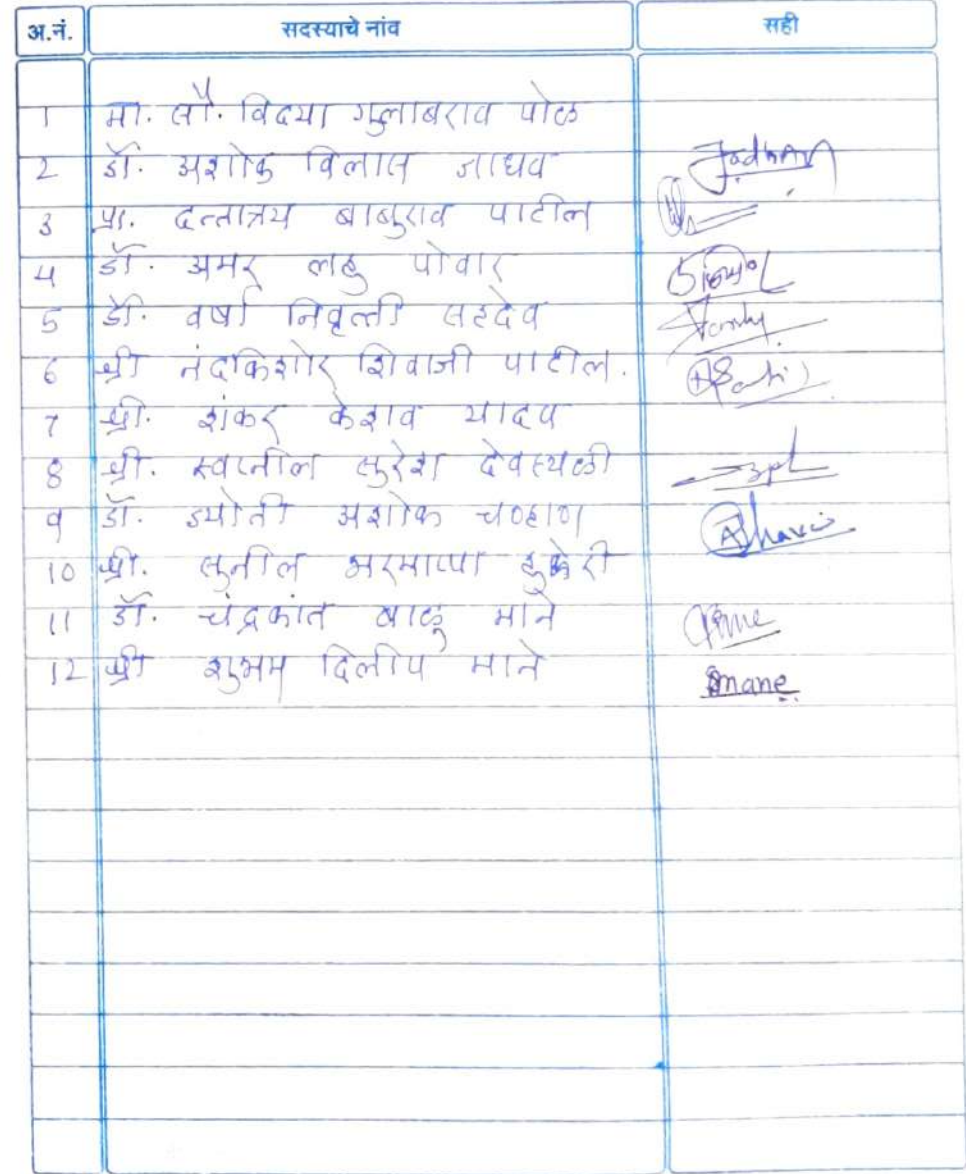 अ.नं. सदस्याचे नांव सही
1 मा. सौ. विद्या गुलाबराव पोळ
2 डॉ. अशोक विलास जाधव Jadhav
3 प्रा. दत्तात्रय बाबुराव पाटील
4 डॉ. अमर लहु पोवार
5 डॉ. वर्षा निवृत्ती सहदेव
6 श्री नंदकिशोर शिवाजी पाटील.
7 श्री. शंकर केशव यादव
8 श्री. स्वप्नील सुरेश देवस्थळी
9 डॉ. ज्योती अशोक चव्हाण
10 श्री. सुनील भरमाप्पा हुक्केरी
11 डॉ. चंद्रकांत बाळू माने
12 श्री शुभम दिलीप माने Smane